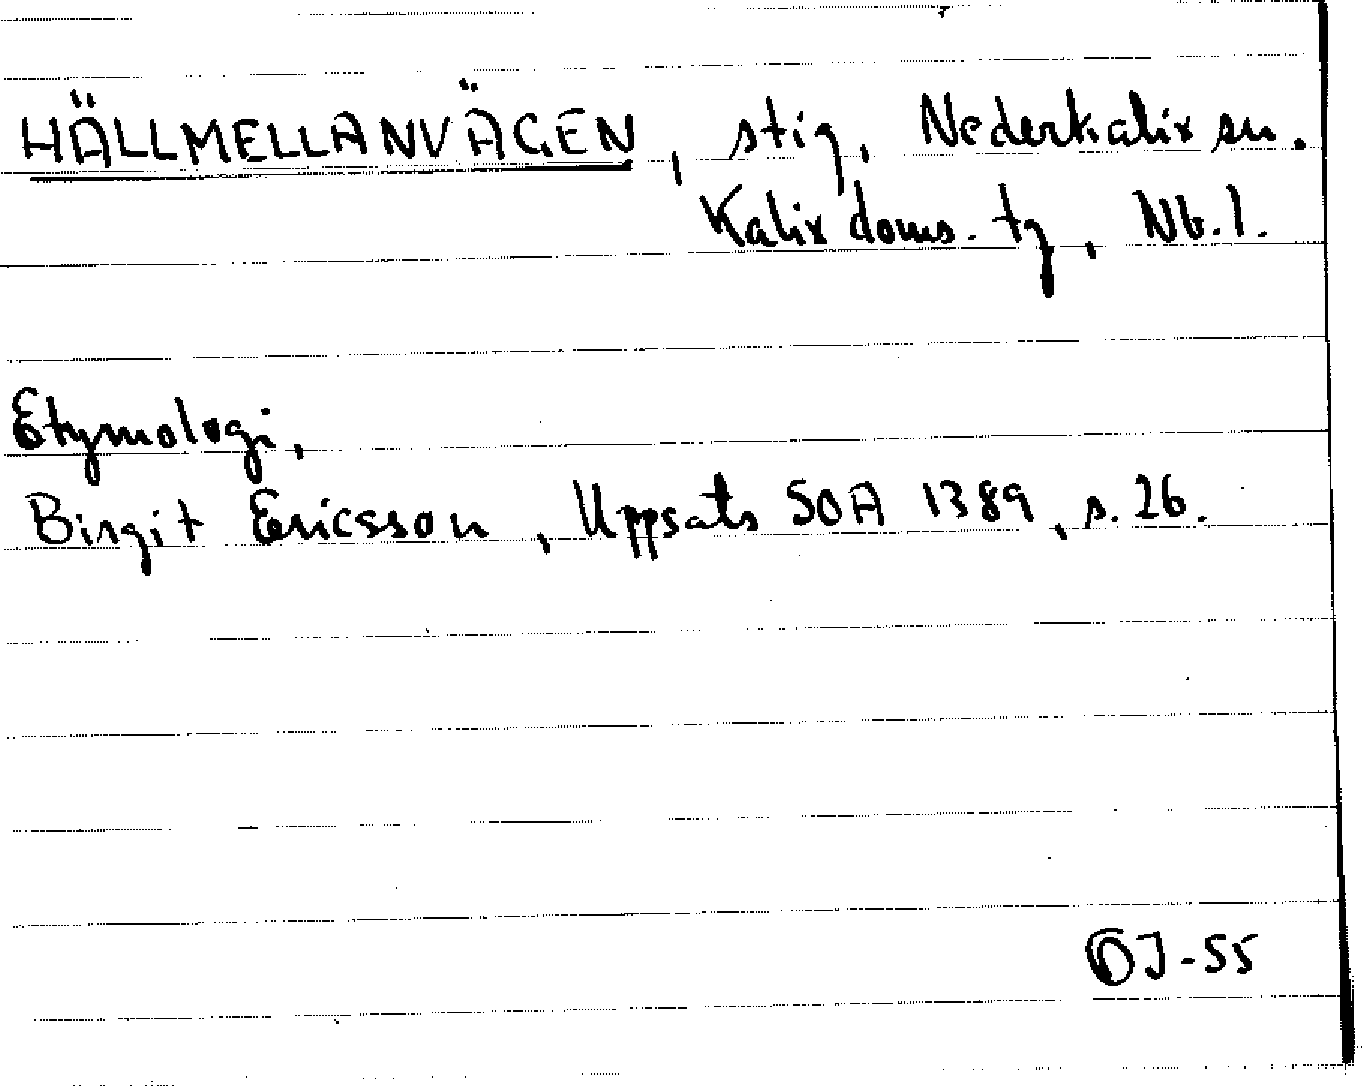 HÄLLMELLANVÄGEN, stig, Nederkalix sn.
Kalix doms. tg, Nb. l.
Etymologi,
Birgit Ericsson, Uppsats SOA 1389, s. 26.
OJ-55